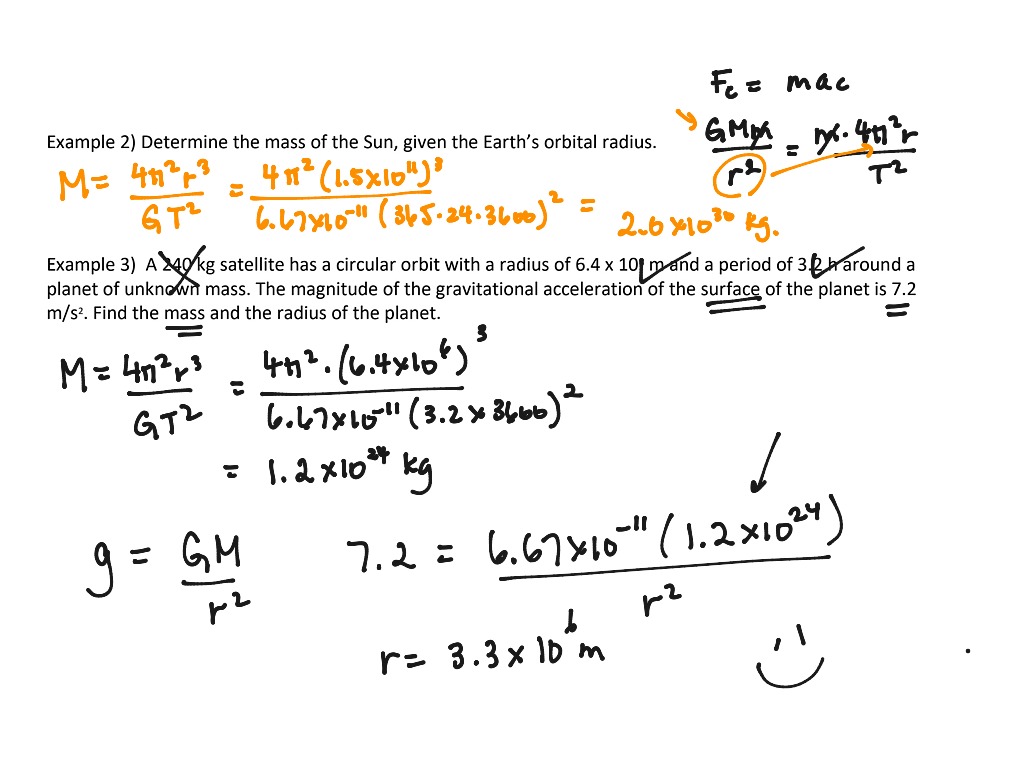 F_c = mac
Example 2) Determine the mass of the Sun, given the Earth’s orbital radius.
GMm/r² = m·4π²r/T²
M = 4π²r³/GT² = 4π²(1.5×10¹¹)³/6.67×10⁻¹¹(365·24·3600)² = 2.0×10³⁰ kg.
Example 3) A 240 kg satellite has a circular orbit with a radius of 6.4 x 10⁶ m and a period of 3.2 h around a
planet of unknown mass. The magnitude of the gravitational acceleration of the surface of the planet is 7.2
m/s². Find the mass and the radius of the planet.
M = 4π²r³/GT² = 4π²·(6.4×10⁶)³/6.67×10⁻¹¹(3.2×3600)²
= 1.2×10²⁴ kg
g = GM/r² 7.2 = 6.67×10⁻¹¹(1.2×10²⁴)/r²
r = 3.3×10⁶ m